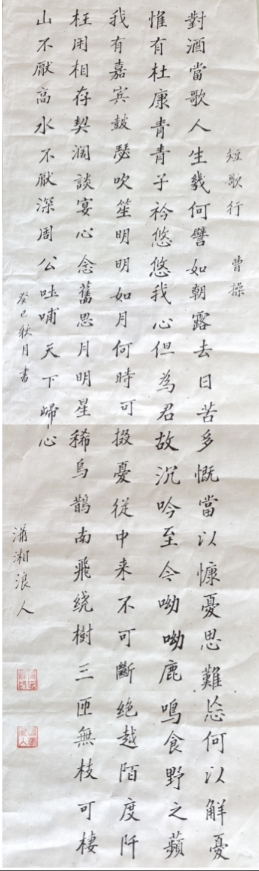 短歌行 曹操
對酒當歌人生幾何譬如朝露去日苦多慨當以慷憂思難忘何以解憂
惟有杜康青青子衿悠悠我心但為君故沉吟至今呦呦鹿鳴食野之蘋
我有嘉宾鼓瑟吹笙明明如月何時可掇憂從中来不可斷絕越陌度阡
枉用相存契濶談宴心念舊恩月明星稀烏鵲南飛绕樹三匝無枝可棲
山不厭高水不厭深周公吐哺天下歸心
癸巳秋月書 瀟湘浪人